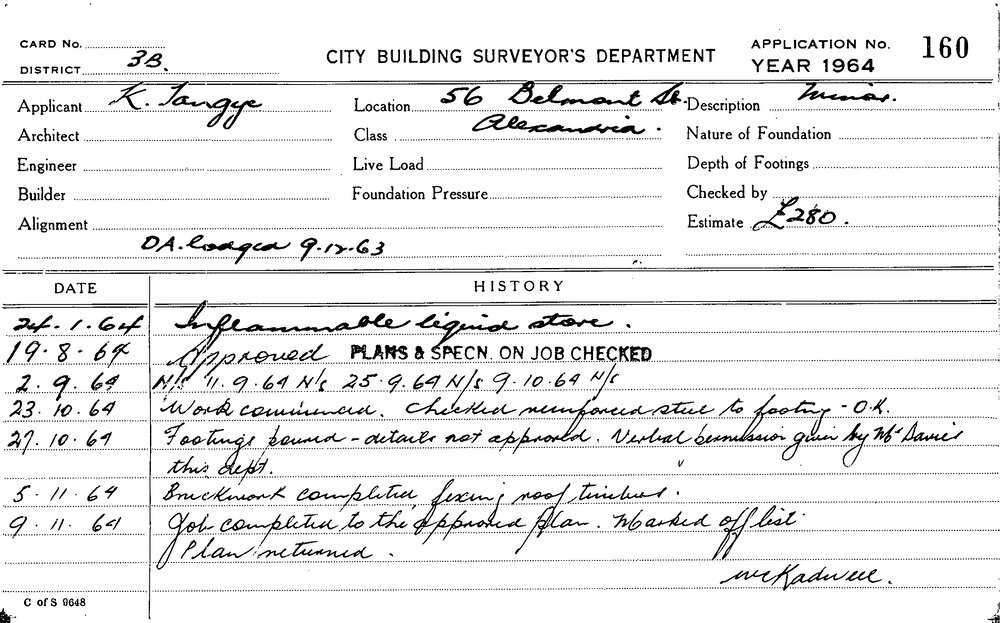 CARD No.
DISTRICT 3B.
CITY BUILDING SURVEYOR'S DEPARTMENT
APPLICATION No. 160
YEAR 1964
Applicant K. Tangye
Location 56 Belmont St.
Description Minor.
Architect
Class Alexandria.
Nature of Foundation
Engineer
Live Load
Depth of Footings
Builder
Foundation Pressure
Checked by
Alignment
Estimate £280.
DA. lodged 9.12.63
DATE HISTORY
24.1.64 Inflammable liquid store.
19.8.64 Approved PLANS & SPECN. ON JOB CHECKED
2.9.64 N/s 11.9.64 N/s 25.9.64 N/s 9.10.64 N/s
23.10.64 Work commenced. Checked reinforced steel to footing - O.K.
27.10.64 Footings poured - details not approved. Verbal permission given by Mr Davies
this dept.
5.11.64 Brickwork completed fixing roof timbers.
9.11.64 Job completed to the approved plan. Marked off list
Plan returned.
C of S 9648